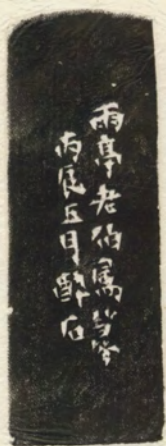 雨亭老伯属
丙辰五月醉石